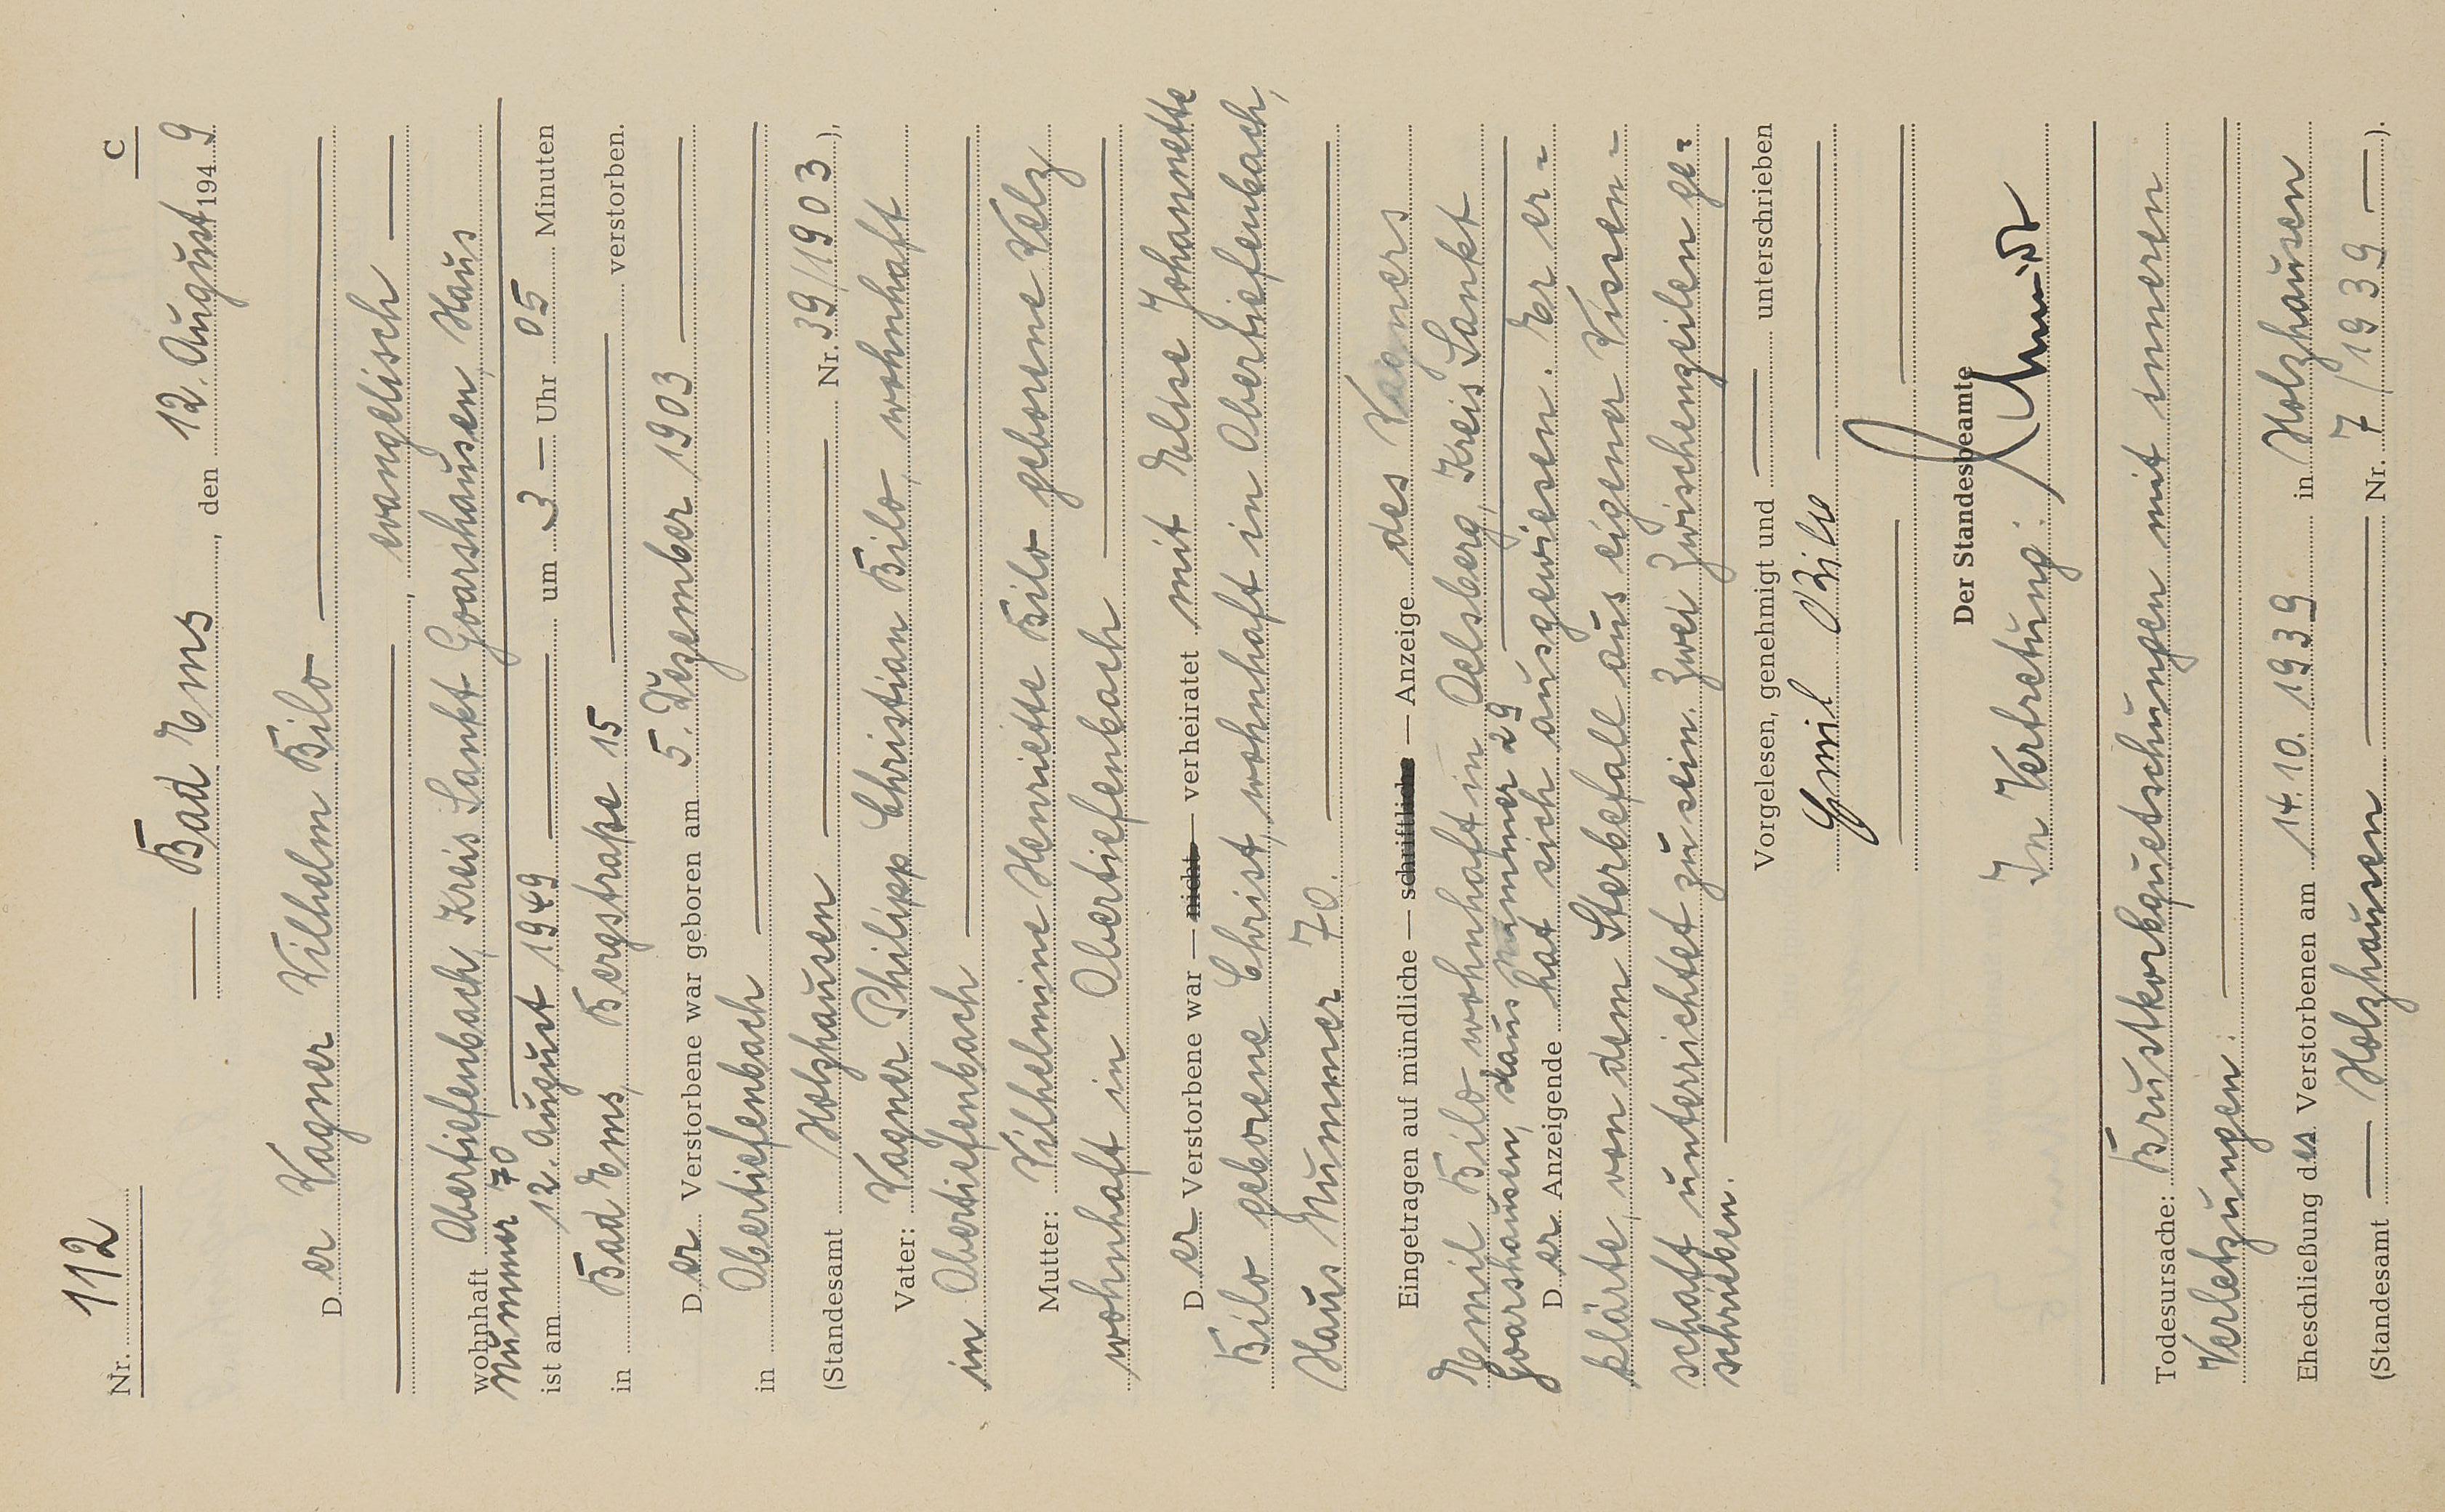 Nr. 112
C
— Bad Ems, den 12. August 1949
Der Wagner Wilhelm Bilo —
—, evangelisch —
wohnhaft Obertiefenbach, Kreis Sankt Goarshausen, Haus
Nummer 70 —
ist am 12. August 1949 — um 3 — Uhr 05 Minuten
in Bad Ems, Bergstraße 15 — verstorben.
Der Verstorbene war geboren am 5. Dezember 1903 —
in Obertiefenbach —
(Standesamt Holzhausen — Nr. 39/1903),
Vater: Wagner Philipp Christian Bilo, wohnhaft
in Obertiefenbach —
Mutter: Wilhelmine Henriette Bilo geborene Welz
wohnhaft in Obertiefenbach —
Der Verstorbene war — nicht — verheiratet mit Elise Johannette
Bilo geborene Christ, wohnhaft in Obertiefenbach,
Haus Nummer 70. —
Eingetragen auf mündliche — schriftliche — Anzeige des Wagners
Emil Bilo wohnhaft in Oelsberg, Kreis Sankt
Goarshausen, Haus Nummer 29 —
Der Anzeigende hat sich ausgewiesen. Er er-
klärte, von dem Sterbefall aus eigener Wissen-
schaft unterrichtet zu sein. Zwei Zwischenzeilen ge-
schrieben. —
Vorgelesen, genehmigt und — unterschrieben
Emil Bilo —
Der Standesbeamte
In Vertretung:
Todesursache: Brustkorbquetschungen mit inneren
Verletzungen. —
Eheschließung des Verstorbenen am 14.10.1939 in Holzhausen
(Standesamt — Holzhausen — Nr. 7/1939 —).